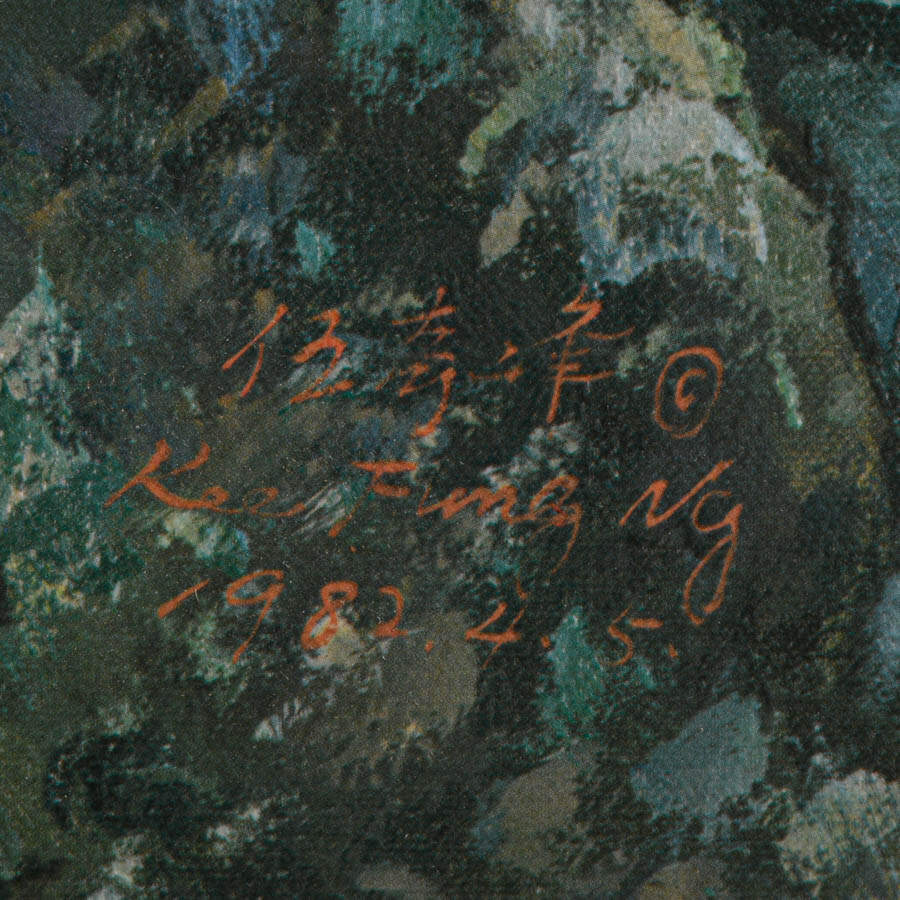 伍奇峰 ©
Kee Fung Ng
1982.4.5.